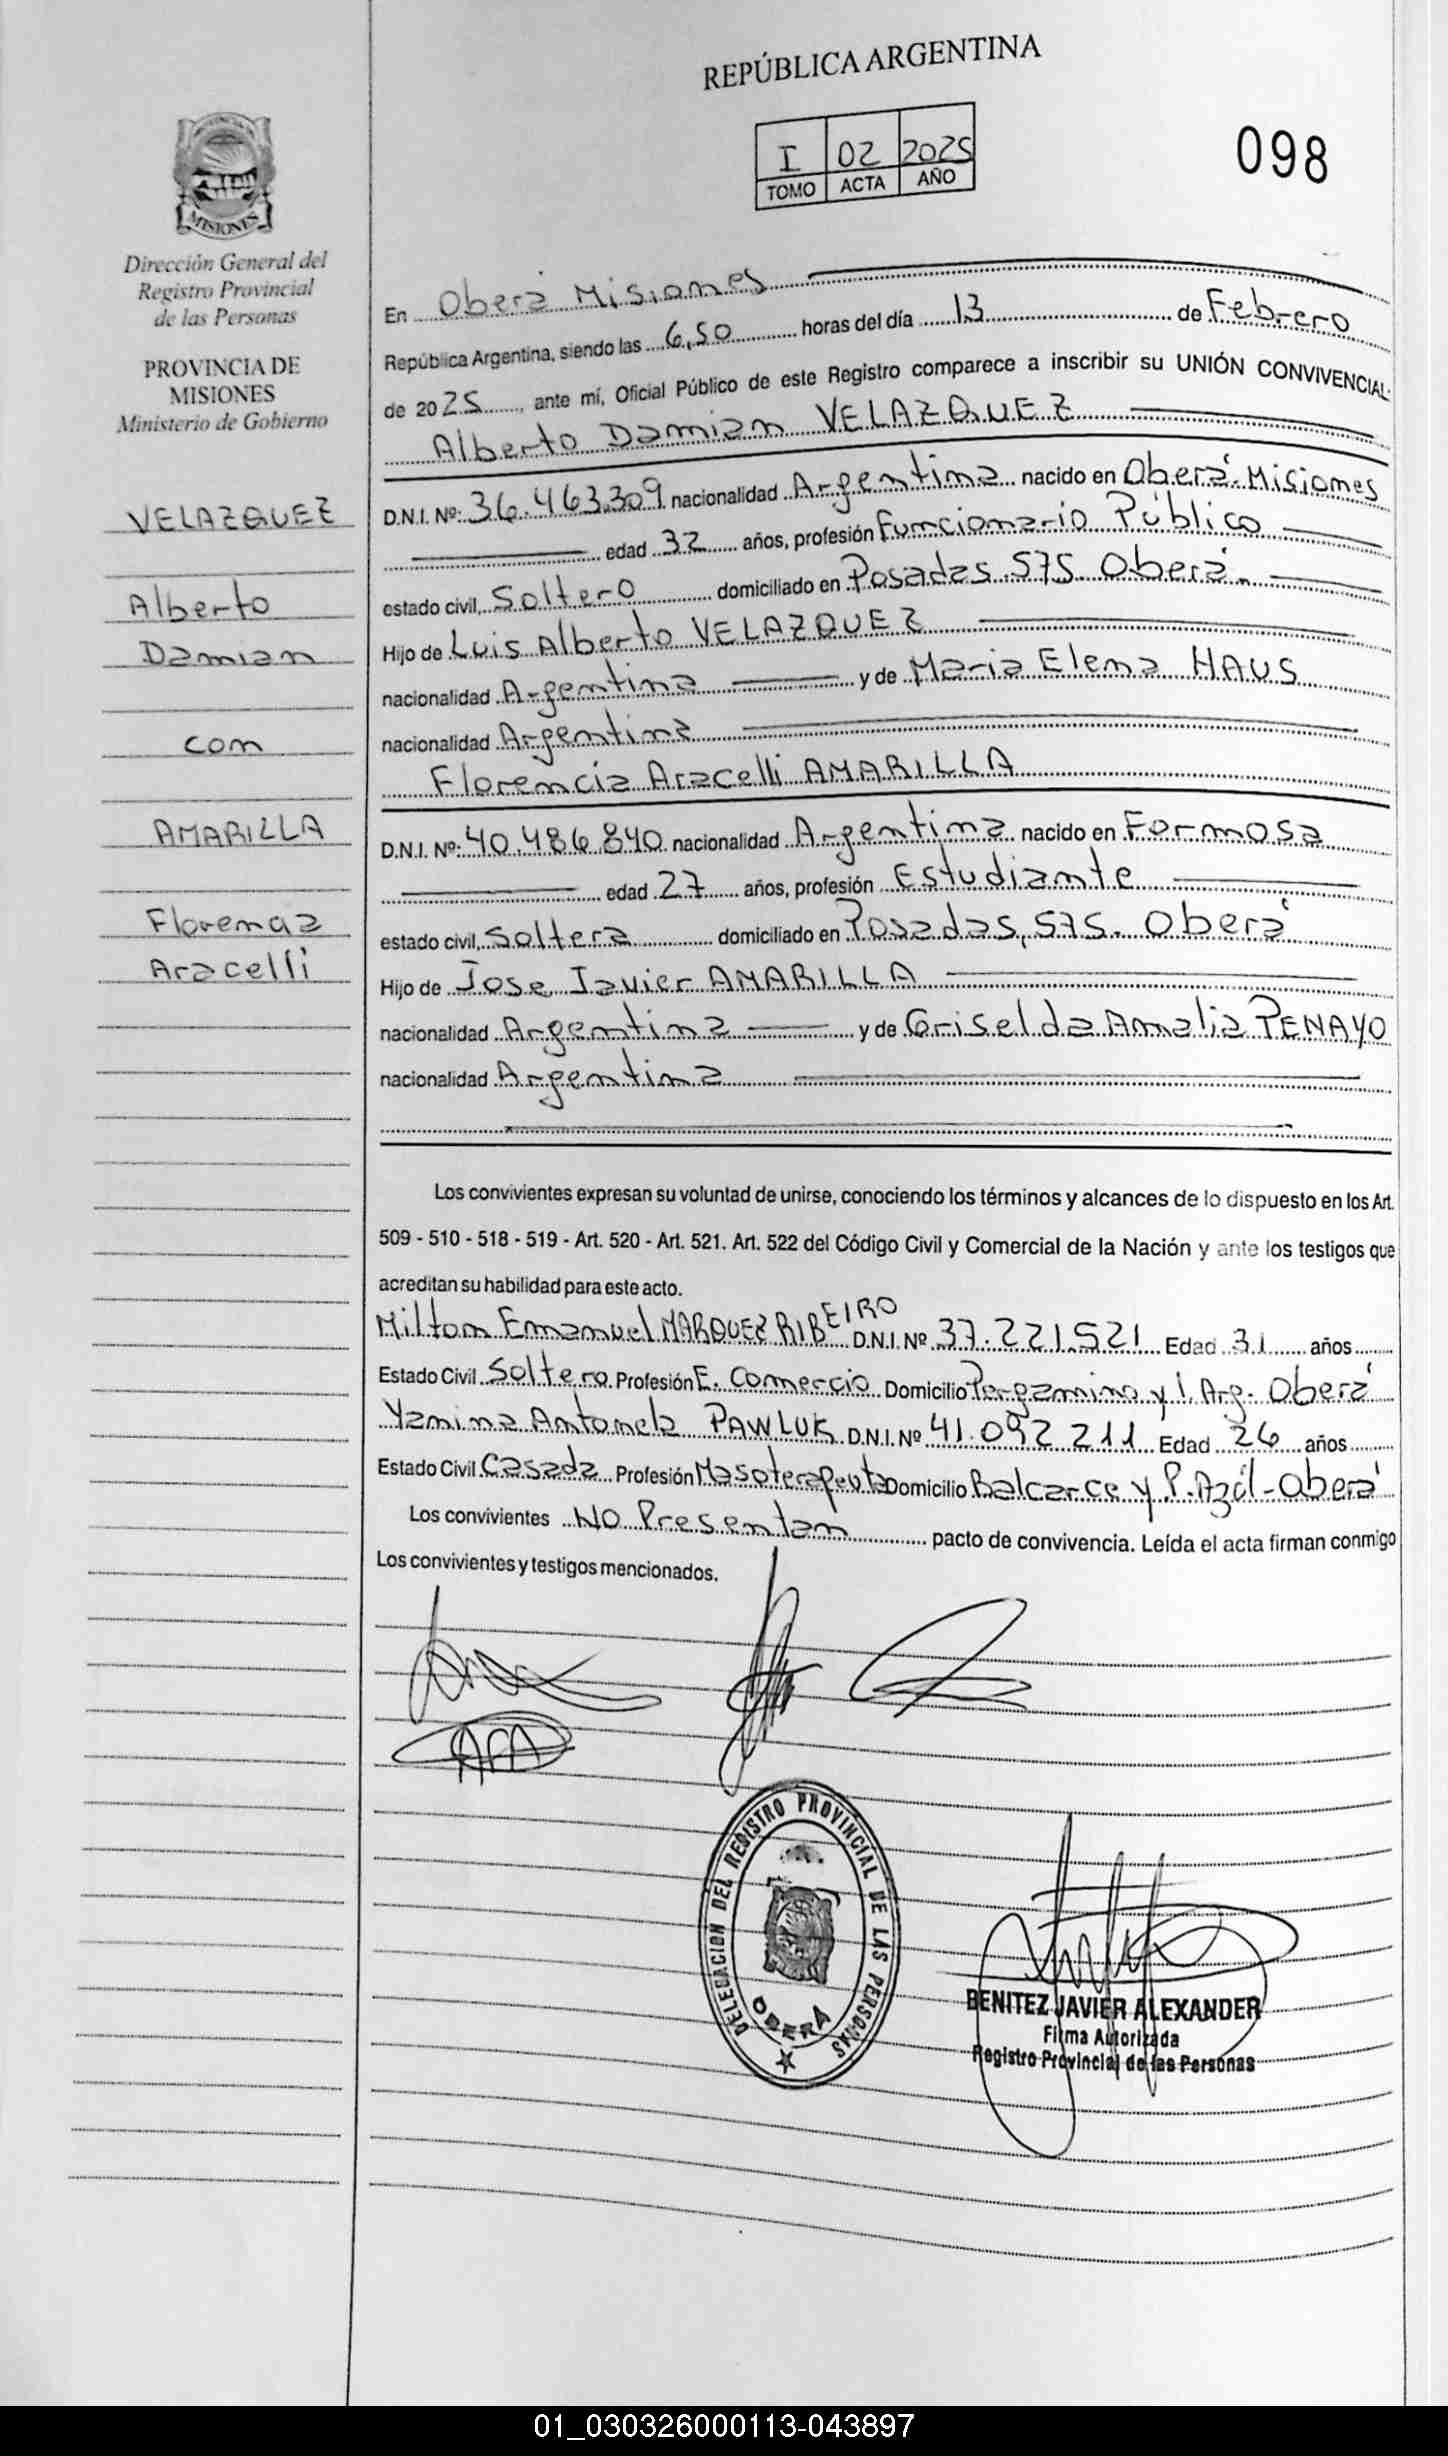 REPÚBLICA ARGENTINA
I 02 2025
TOMO ACTA AÑO
098
PROVINCIA DE
MISIONES
Dirección General del
Registro Provincial
de las Personas
PROVINCIA DE
MISIONES
Ministerio de Gobierno
VELAZQUEZ
Alberto
Damian
con
AMARILLA
Florencia
Aracelli
En Oberá Misiones
República Argentina, siendo las 6,50 horas del día 13 de Febrero
de 2025, ante mí, Oficial Público de este Registro comparece a inscribir su UNIÓN CONVIVENCIAL:
Alberto Damian VELAZQUEZ
D.N.I. Nº: 36.463.309 nacionalidad Argentina nacido en Oberá-Misiones
edad 32 años, profesión Funcionario Público
estado civil, Soltero domiciliado en Posadas 575 Oberá.
Hijo de Luis Alberto VELAZQUEZ
nacionalidad Argentina y de Maria Elena HAUS
nacionalidad Argentina
Florencia Aracelli AMARILLA
D.N.I. Nº: 40.486.840 nacionalidad Argentina nacido en Formosa
edad 27 años, profesión Estudiante
estado civil, Soltera domiciliado en Posadas, 575. Oberá
Hijo de Jose Javier AMARILLA
nacionalidad Argentina y de Griselda Amalia PENAYO
nacionalidad Argentina
Los convivientes expresan su voluntad de unirse, conociendo los términos y alcances de lo dispuesto en los Art.
509 - 510 - 518 - 519 - Art. 520 - Art. 521. Art. 522 del Código Civil y Comercial de la Nación y ante los testigos que
acreditan su habilidad para este acto.
Milton Emanuel MARQUEZ RIBEIRO D.N.I. Nº 37.221.521 Edad 31 años
Estado Civil Soltero Profesión E. Comercio Domicilio Pergamino y I. Arg. Oberá
Yamina Antonela PAWLUK D.N.I. Nº 41.092 211 Edad 26 años
Estado Civil Casada Profesión Masoterapeuta Domicilio Balcarce y P. Azúl-Oberá
Los convivientes NO Presentan pacto de convivencia. Leída el acta firman conmigo
Los convivientes y testigos mencionados.
AFA
DELEGACION DEL REGISTRO PROVINCIAL DE LAS PERSONAS
OBERÁ
BENITEZ JAVIER ALEXANDER
Firma Autorizada
Registro Provincial de las Personas
01_030326000113-043897